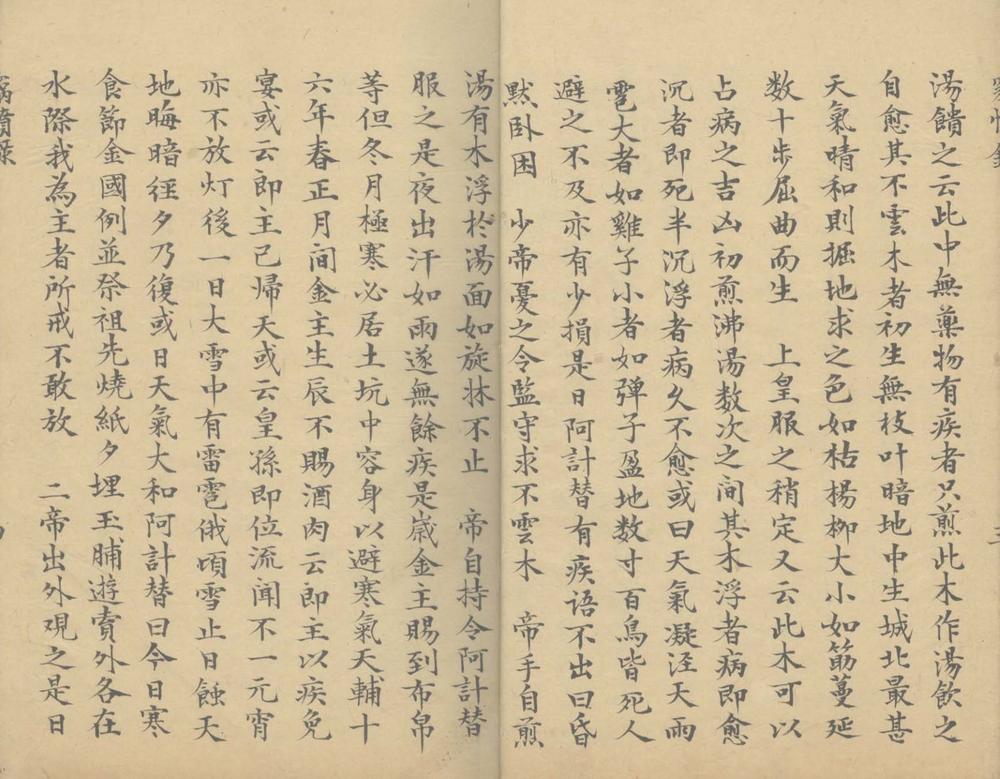 湯饋之云此中無藥物有疾者只煎此木作湯飲之
自愈其不雲木者初生無枝叶暗地中生城北最甚
天氣晴和則掘地求之色如枯楊柳大小如筯蔓延
数十步屈曲而生 上皇服之稍定又云此木可以
占病之吉凶初煎沸湯数次之间其木浮者病即愈
沉者即死半沉浮者病久不愈或曰天氣凝注天雨
雹大者如雞子小者如弹子盈地数寸百鳥皆死人
避之不及亦有少損是日阿計替有疾语不出曰昏
黙卧困 少帝憂之令監守求不雲木 帝手自煎
湯有木浮於湯面如旋抹不止 帝自持令阿計替
服之是夜出汗如雨遂無餘疾是嵗金主賜到布帛
等但冬月極寒必居土坑中容身以避寒氣天輔十
六年春正月间金主生辰不賜酒肉云即主以疾免
宴或云即主已帰天或云皇孫即位流闻不一元宵
亦不放灯後一日大雪中有雷雹俄頃雪止日蝕天
地晦暗經夕乃復或日天氣大和阿計替曰今日寒
食節金國例並祭祖先燒紙夕埋玉脯遊賞外各在
水際我為主者所戒不敢放 二帝出外覌之是日